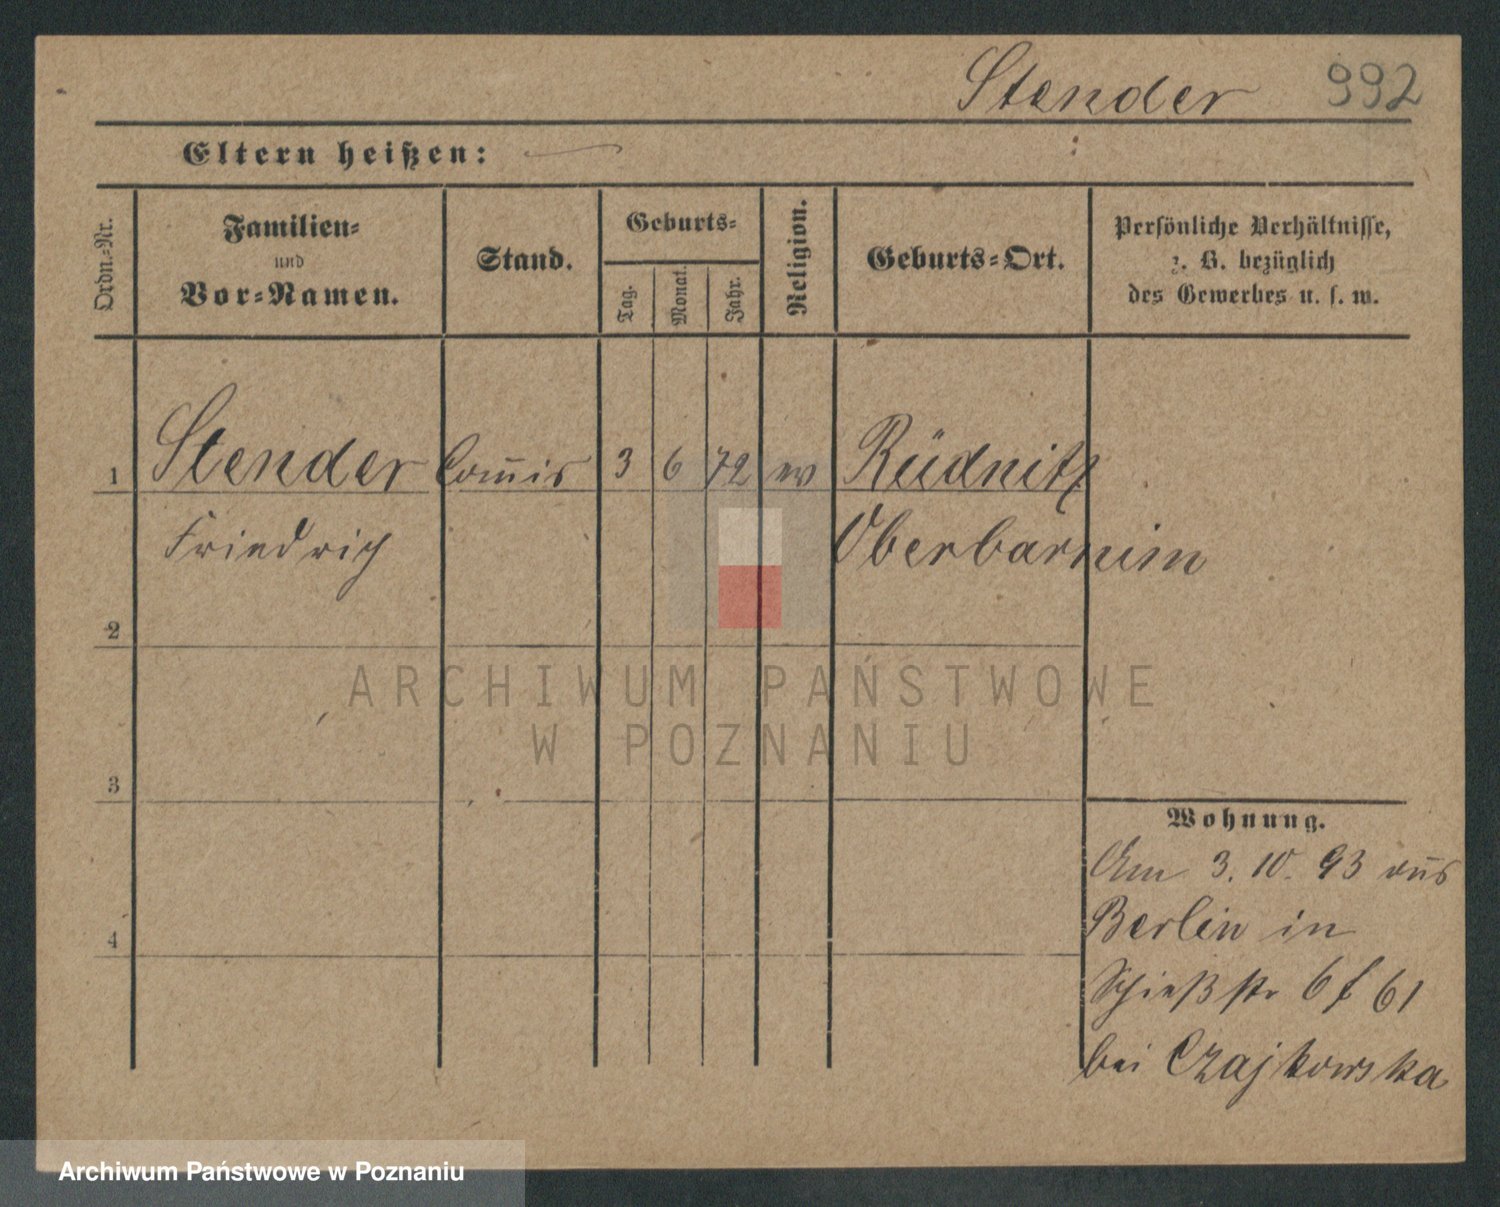 Stender 992
Eltern heißen:
Ordn.-Nr.
Familien-
und
Vor-Namen.
Stand.
Geburts-
Tag.
Monat.
Jahr.
Religion.
Geburts-Ort.
Persönliche Verhältnisse,
z. B. bezüglich
des Gewerbes u. s. w.
1 Stender Com̅is 3 6 72 ev Rüdnitz
Friedrich Oberbarnim
2
3
4
Wohnung.
Am 3. 10. 93 aus
Berlin in
Schießstr 6 f 61
bei Czajkowska
ARCHIWUM PAŃSTWOWE
W POZNANIU
Archiwum Państwowe w Poznaniu